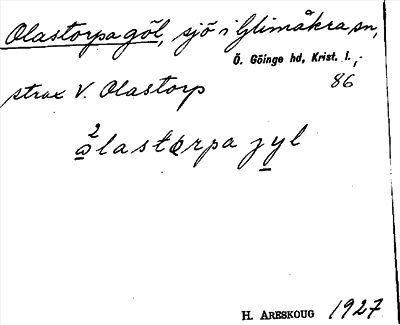 Olastorpagöl, sjö i Glimåkra sn,
Ö. Göinge hd, Krist. l.,
strax V. Olastorp 86
2
a̲lastørpa jy̲l
H. ARESKOUG 1927